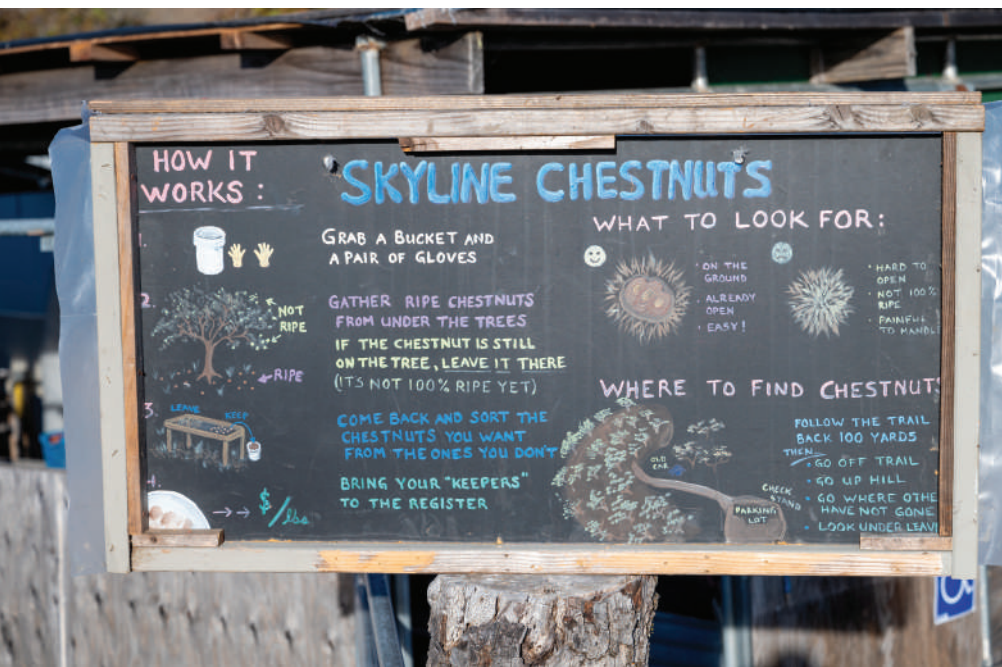 HOW IT
WORKS:
SKYLINE CHESTNUTS
1.
GRAB A BUCKET AND
A PAIR OF GLOVES
2.
NOT
RIPE
RIPE
GATHER RIPE CHESTNUTS
FROM UNDER THE TREES
IF THE CHESTNUT IS STILL
ON THE TREE, LEAVE IT THERE
(ITS NOT 100% RIPE YET)
3.
LEAVE
KEEP
COME BACK AND SORT THE
CHESTNUTS YOU WANT
FROM THE ONES YOU DON'T
4.
$/lbs
BRING YOUR "KEEPERS"
TO THE REGISTER
WHAT TO LOOK FOR:
• ON THE
GROUND
• ALREADY
OPEN
• EASY!
• HARD TO
OPEN
• NOT 100%
RIPE
• PAINFUL
TO HANDL
WHERE TO FIND CHESTNUTS
OLD
CAR
CHECK
STAND
PARKING
LOT
FOLLOW THE TRAIL
BACK 100 YARDS
THEN
• GO OFF TRAIL
• GO UP HILL
• GO WHERE OTHE
HAVE NOT GONE
• LOOK UNDER LEAV